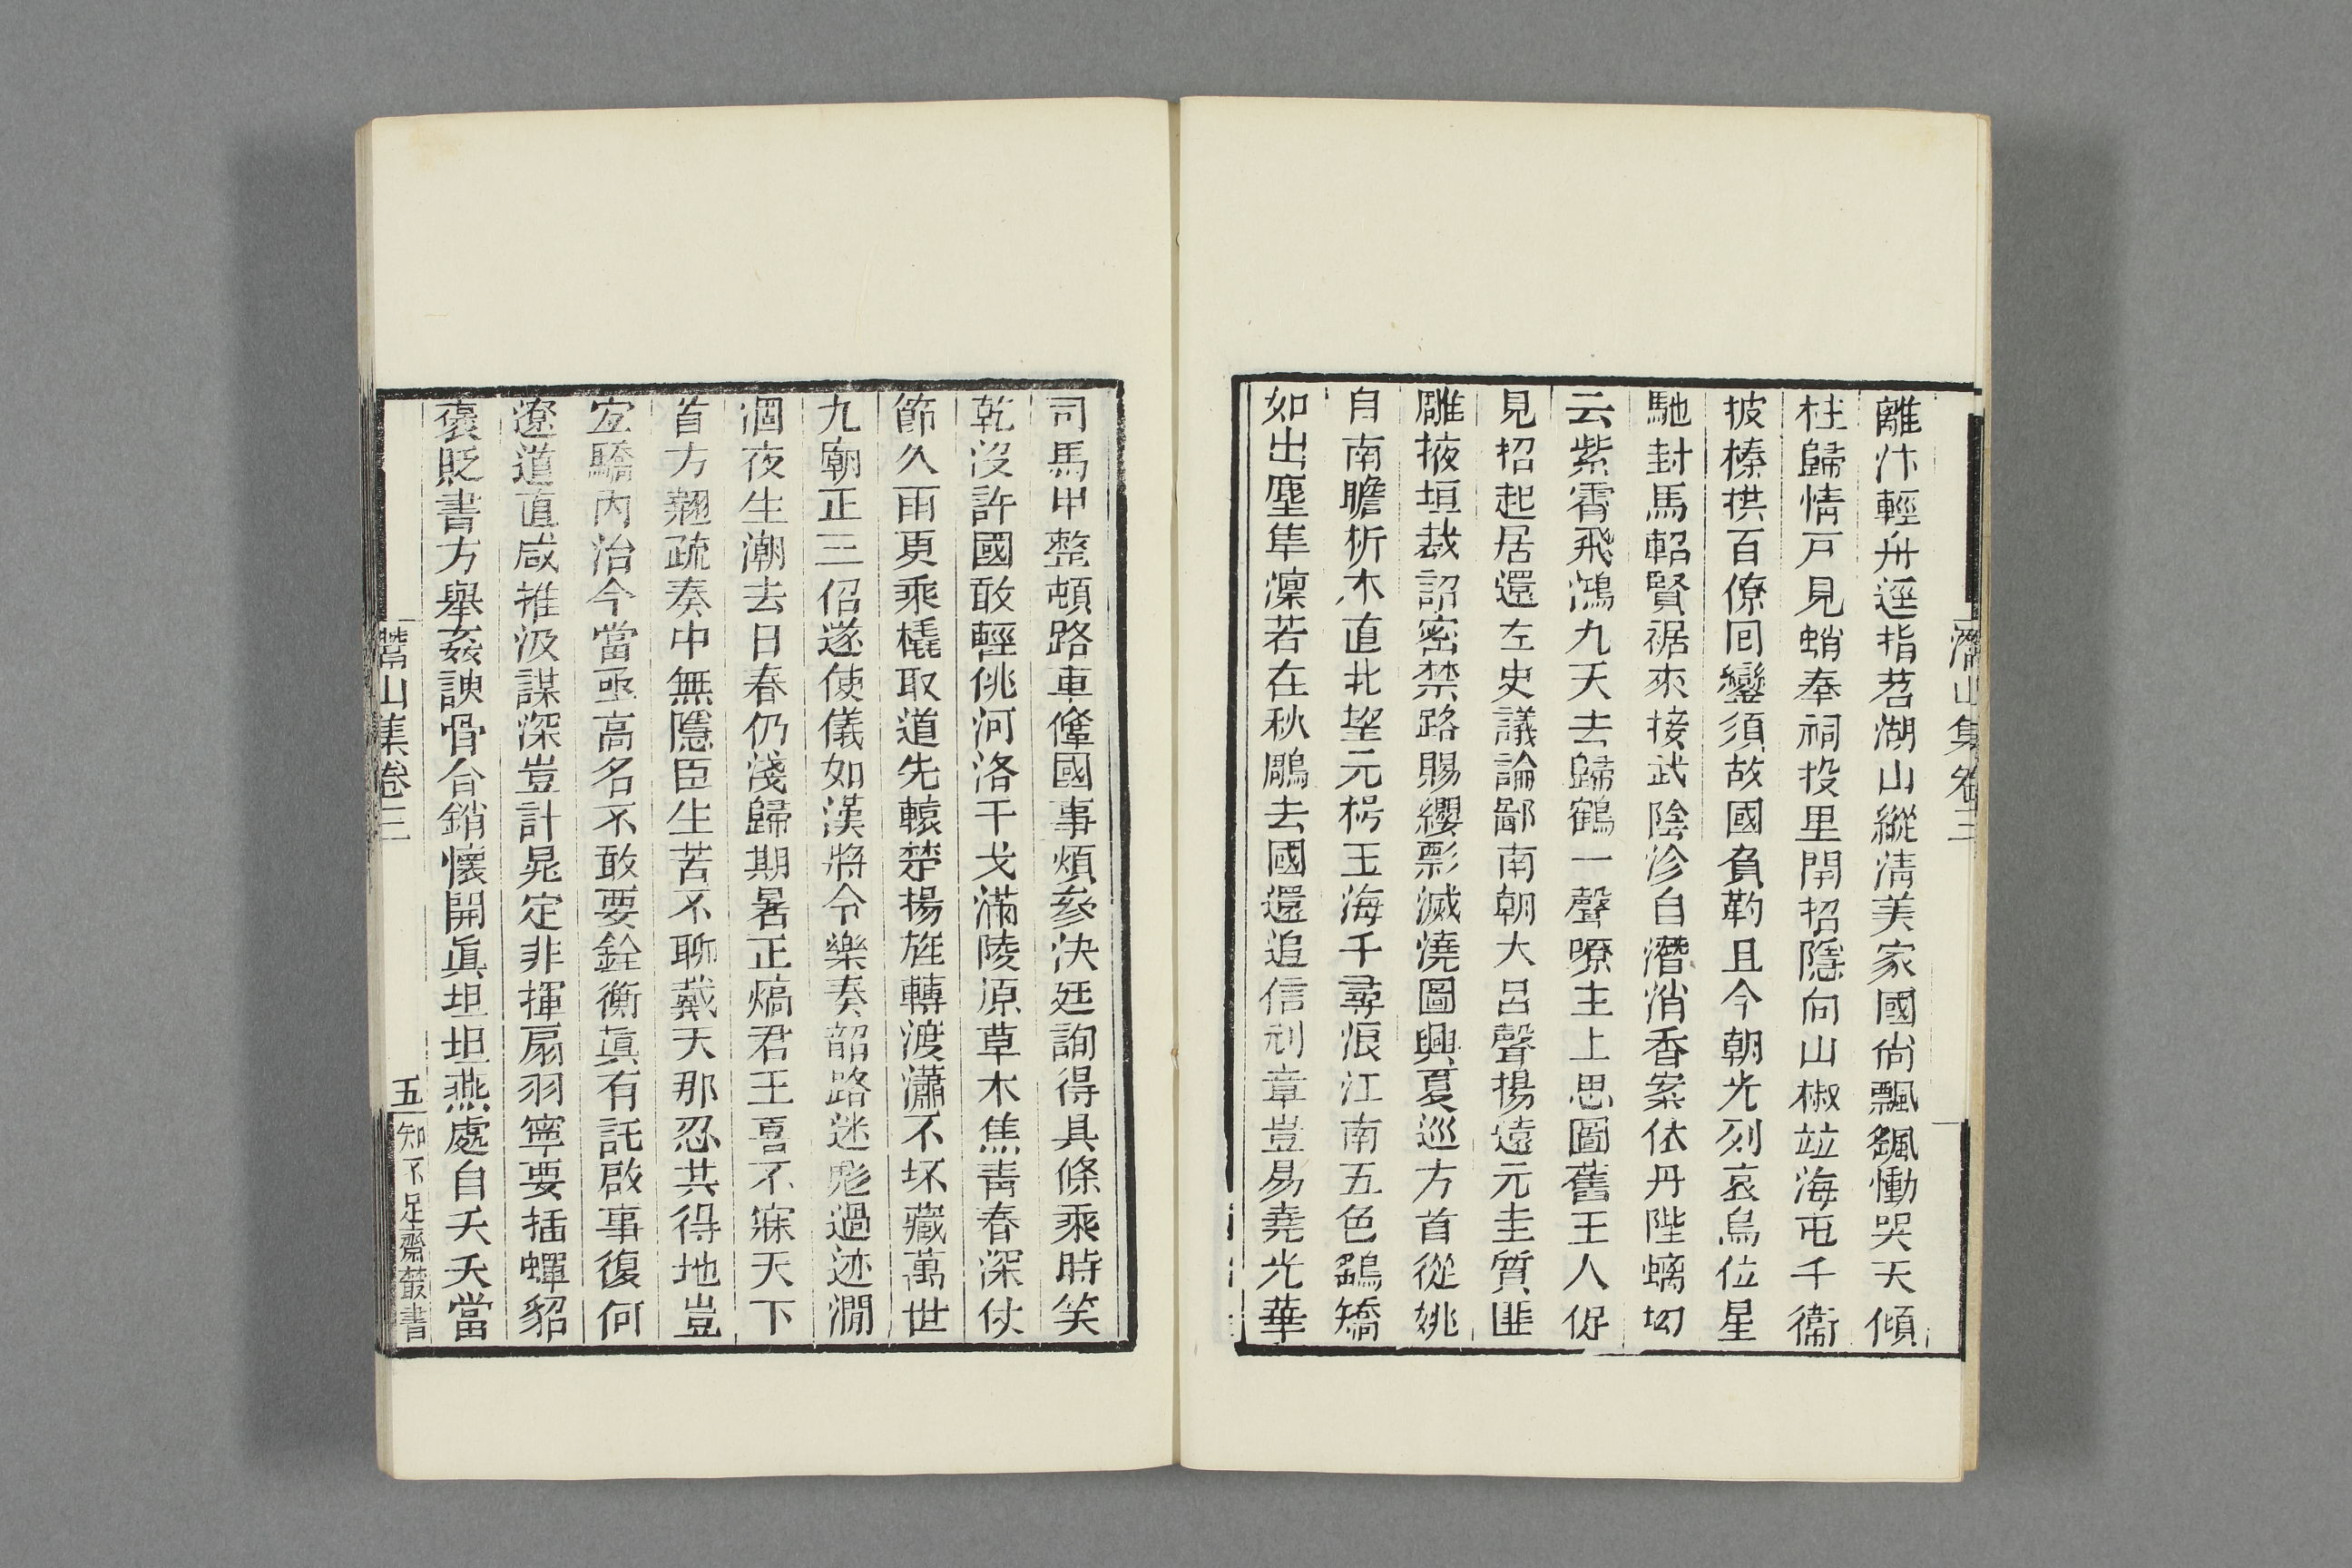 灊山集卷三
離汴輕舟逕指苕湖山縱清美家國尙飄飖慟哭天傾
柱歸情戸見蛸奉祠投里閈招隱向山椒竝海屯千衞
披榛拱百僚囘鑾須故國負靮且今朝光列哀烏位星
馳封馬軺賢裾來接武陰沴自潛消香案依丹陛螭坳
云紫霄飛鴻九天去歸鶴一聲嘹主上思圖舊王人伻
見招起居還左史議論鄙南朝大呂聲揚遠元圭質匪
雕掖垣裁詔密禁路賜纓彯滅澆圖興夏巡方首從姚
自南瞻析木直北望元枵玉海千尋浪江南五色鷂矯
如出塵隼凜若在秋鵰去國還追信刓章豈易堯光華
司馬甲整頓路車㒓國事煩參決廷詢得具條乘時笑
乾没許國敢輕佻河洛干戈滿陵原草木焦靑春深仗
節久雨夏乘橇取道先轅楚揚旌轉渡瀟不坏藏萬世
九廟正三佋遂使儀如漢將令樂奏韶路迷彪過迹澗
涸夜生潮去日春仍淺歸期暑正熇君王喜不寐天下
首方翹疏奏中無隱臣生苦不聊戴天那忍共得地豈
宐驕内治今當亟高名不敢要銓衡眞有託啟事復何
遼道直咸推汲謀深豈計晁定非揮扇羽寧要插蟬貂
褒貶書方舉姦諛骨合銷懷開眞坦坦燕處自夭夭當
灊山集卷三
五
知不足齋叢書